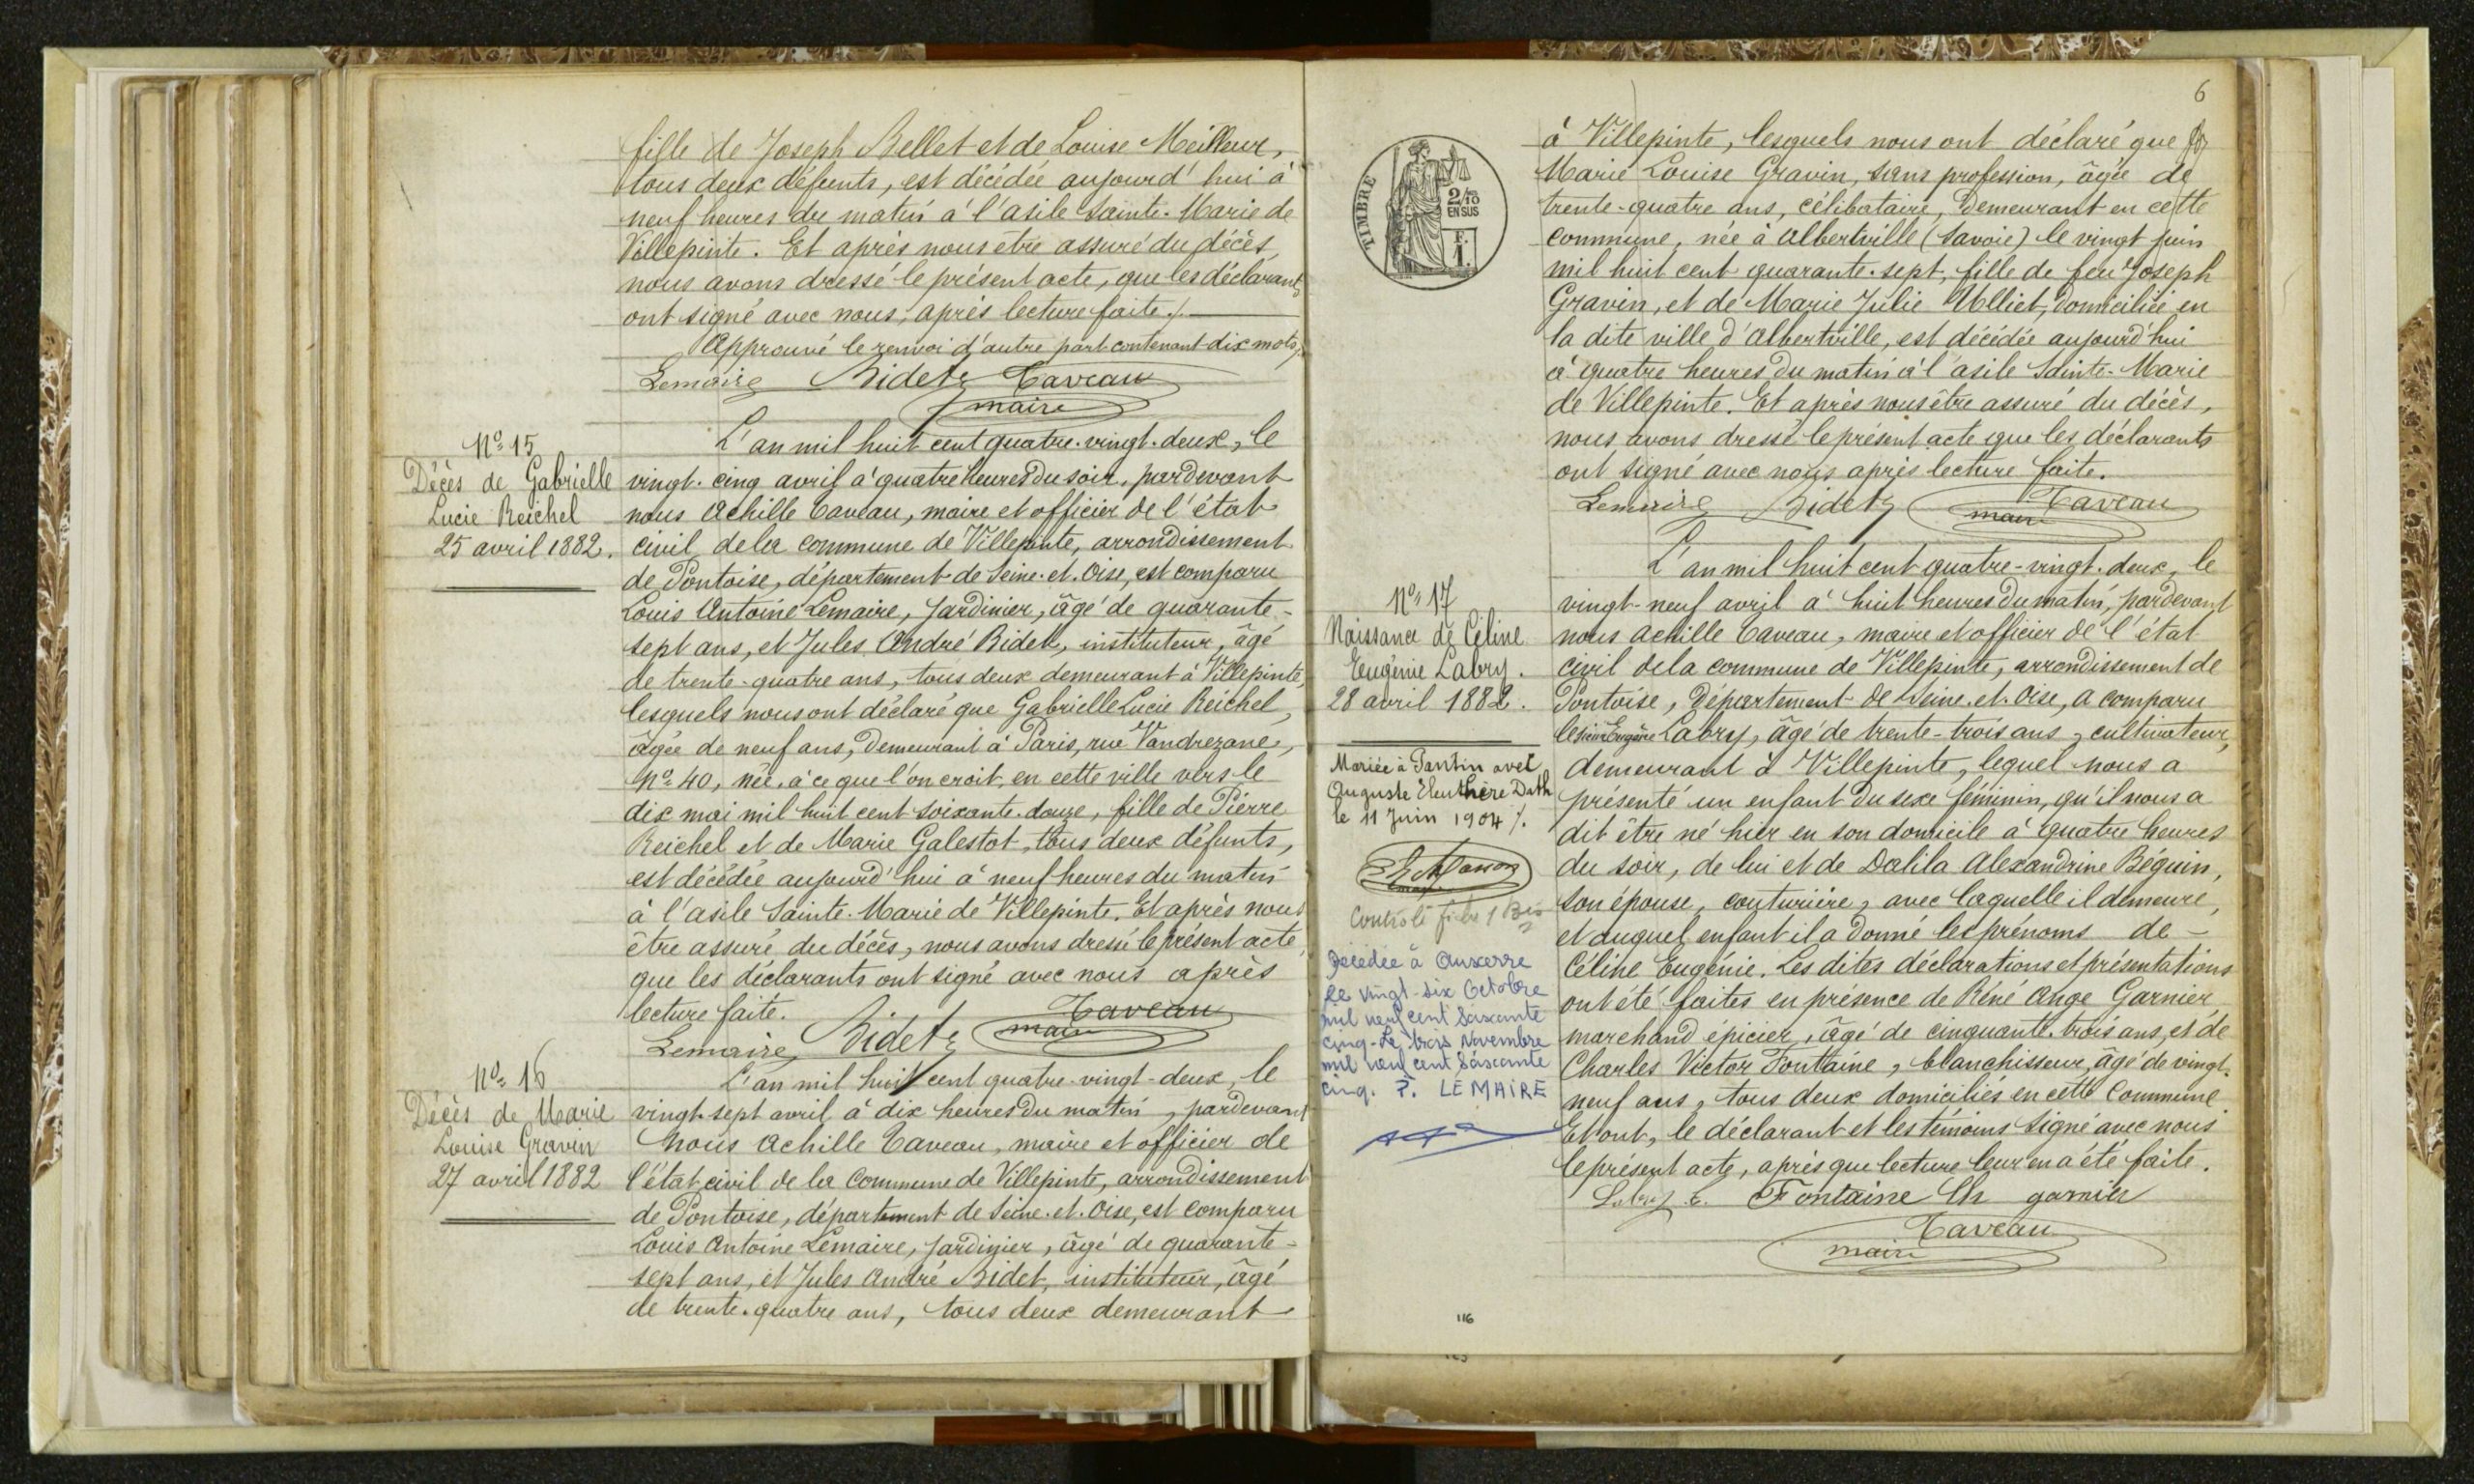 fille de Joseph Bellet et de Louise Meilleur,
tous deux défunts, est décédée aujourd'hui à
neuf heures du matin à l'asile Sainte-Marie de
Villepinte. Et après nous être assuré du décès,
nous avons dressé le présent acte, que les déclarants
ont signé avec nous, après lecture faite./.
Approuvé le renvoi d'autre part contenant dix mots,
Lemaire Bidet Taveau
maire
Nº 15
Décès de Gabrielle
Lucie Reichel
25 avril 1882.
L'an mil huit cent quatre-vingt-deux, le
vingt-cinq avril à quatre heures du soir, pardevant
nous Achille Taveau, maire et officier de l'état
civil de la commune de Villepinte, arrondissement
de Pontoise, département de Seine-et-Oise, est comparu
Louis Antoine Lemaire, jardinier, âgé de quarante-
sept ans, et Jules André Bidet, instituteur, âgé
de trente-quatre ans, tous deux demeurant à Villepinte,
lesquels nous ont déclaré que Gabrielle Lucie Reichel,
âgée de neuf ans, demeurant à Paris, rue Vandrezane,
Nº 40, née, à ce que l'on croit, en cette ville vers le
dix mai mil huit cent soixante-douze, fille de Pierre
Reichel et de Marie Galestot, tous deux défunts,
est décédée aujourd'hui à neuf heures du matin
à l'asile Sainte-Marie de Villepinte. Et après nous
être assuré du décès, nous avons dressé le présent acte
que les déclarants ont signé avec nous après
lecture faite.
Lemaire Bidet Taveau
maire
Nº 16
Décès de Marie
Louise Gravin
27 avril 1882
L'an mil huit cent quatre-vingt-deux, le
vingt-sept avril à dix heures du matin, pardevant
nous Achille Taveau, maire et officier de
l'état civil de la commune de Villepinte, arrondissement
de Pontoise, département de Seine-et-Oise, est comparu
Louis Antoine Lemaire, jardinier, âgé de quarante-
sept ans, et Jules André Bidet, instituteur, âgé
de trente-quatre ans, tous deux demeurant
6
TIMBRE
2/10
EN SUS
F.
1.
à Villepinte, lesquels nous ont déclaré que
Marie Louise Gravin, sans profession, âgée de
trente-quatre ans, célibataire, demeurant en cette
commune, née à Albertville (Savoie) le vingt juin
mil huit cent quarante-sept, fille de feu Joseph
Gravin, et de Marie Julie Ulliet, domiciliée en
la dite ville d'Albertville, est décédée aujourd'hui
à quatre heures du matin à l'asile Sainte-Marie
de Villepinte. Et après nous être assuré du décès,
nous avons dressé le présent acte que les déclarants
ont signé avec nous après lecture faite.
Lemaire Bidet Taveau
maire
Nº 17
Naissance de Céline
Eugénie Labry.
28 avril 1882.
Mariée à Pantin avec
Auguste Eleuthère Dath
le 11 Juin 1904 /.
Contrôlé fiche 1 Bis
Décédée à Auxerre
le vingt-six Octobre
mil neuf cent soixante
cinq. Le trois Novembre
mil neuf cent soixante
cinq. P. LE MAIRE
L'an mil huit cent quatre-vingt-deux, le
vingt-neuf avril à huit heures du matin, pardevant
nous Achille Taveau, maire et officier de l'état
civil de la commune de Villepinte, arrondissement de
Pontoise, département de Seine-et-Oise, a comparu
le sieur Eugène Labry, âgé de trente-trois ans, cultivateur,
demeurant à Villepinte, lequel nous a
présenté un enfant du sexe féminin, qu'il nous a
dit être né hier en son domicile à quatre heures
du soir, de lui et de Dalila Alexandrine Béguin,
son épouse, couturière, avec laquelle il demeure,
et auquel enfant il a donné les prénoms de -
Céline Eugénie. Les dites déclarations et présentations
ont été faites en présence de Réné Ange Garnier
marchand épicier, âgé de cinquante-trois ans, et de
Charles Victor Fontaine, blanchisseur, âgé de vingt-
neuf ans, tous deux domiciliés en cette commune.
Et ont, le déclarant et les témoins signé avec nous
le présent acte, après que lecture leur en a été faite.
Labry E. Fontaine Ch garnier
Taveau
maire
116